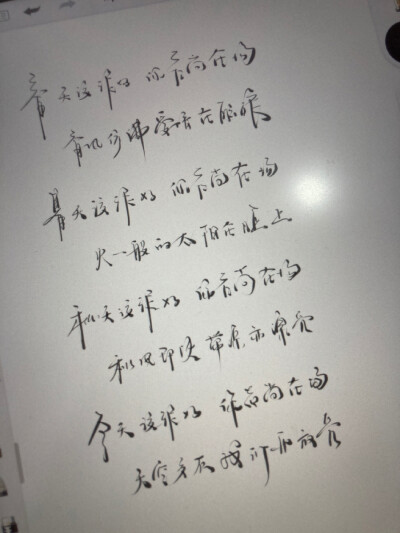 春天该很好 你若尚在场
春风仿佛爱情在酝酿
夏天该很好 你若尚在场
火一般的太阳在脸上
秋天该很好 你若尚在场
秋风即使带凉亦漂亮
冬天该很好 你若尚在场
天空多灰我们亦放亮